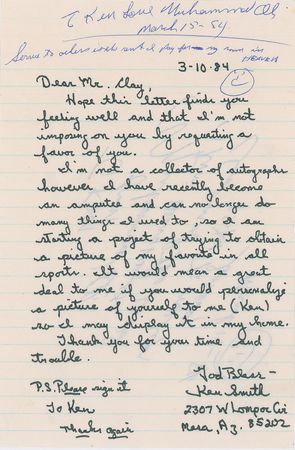 To Ken Love Muhammad Ali
March 15-84
Service to others is the rent I pay for my room in
HEAVEN
3-10-84
Dear Mr. Clay,
Hope this letter finds you
feeling well and that I'm not
imposing on you by requesting a
favor of you.
I'm not a collector of autographs
however I have recently become
an amputee and can no longer do
many things I used to, so I am
starting a project of trying to obtain
a picture of my favorite in all
sports. It would mean a great
deal to me if you would personalize
a picture of yourself to me (Ken)
so I may display it in my home.
Thank you for your time and
trouble.
God Bless -
P.S. Please sign it
Ken Smith
To Ken
2307 W Lompoc Cir
Thanks again
Mesa, Az. 85202